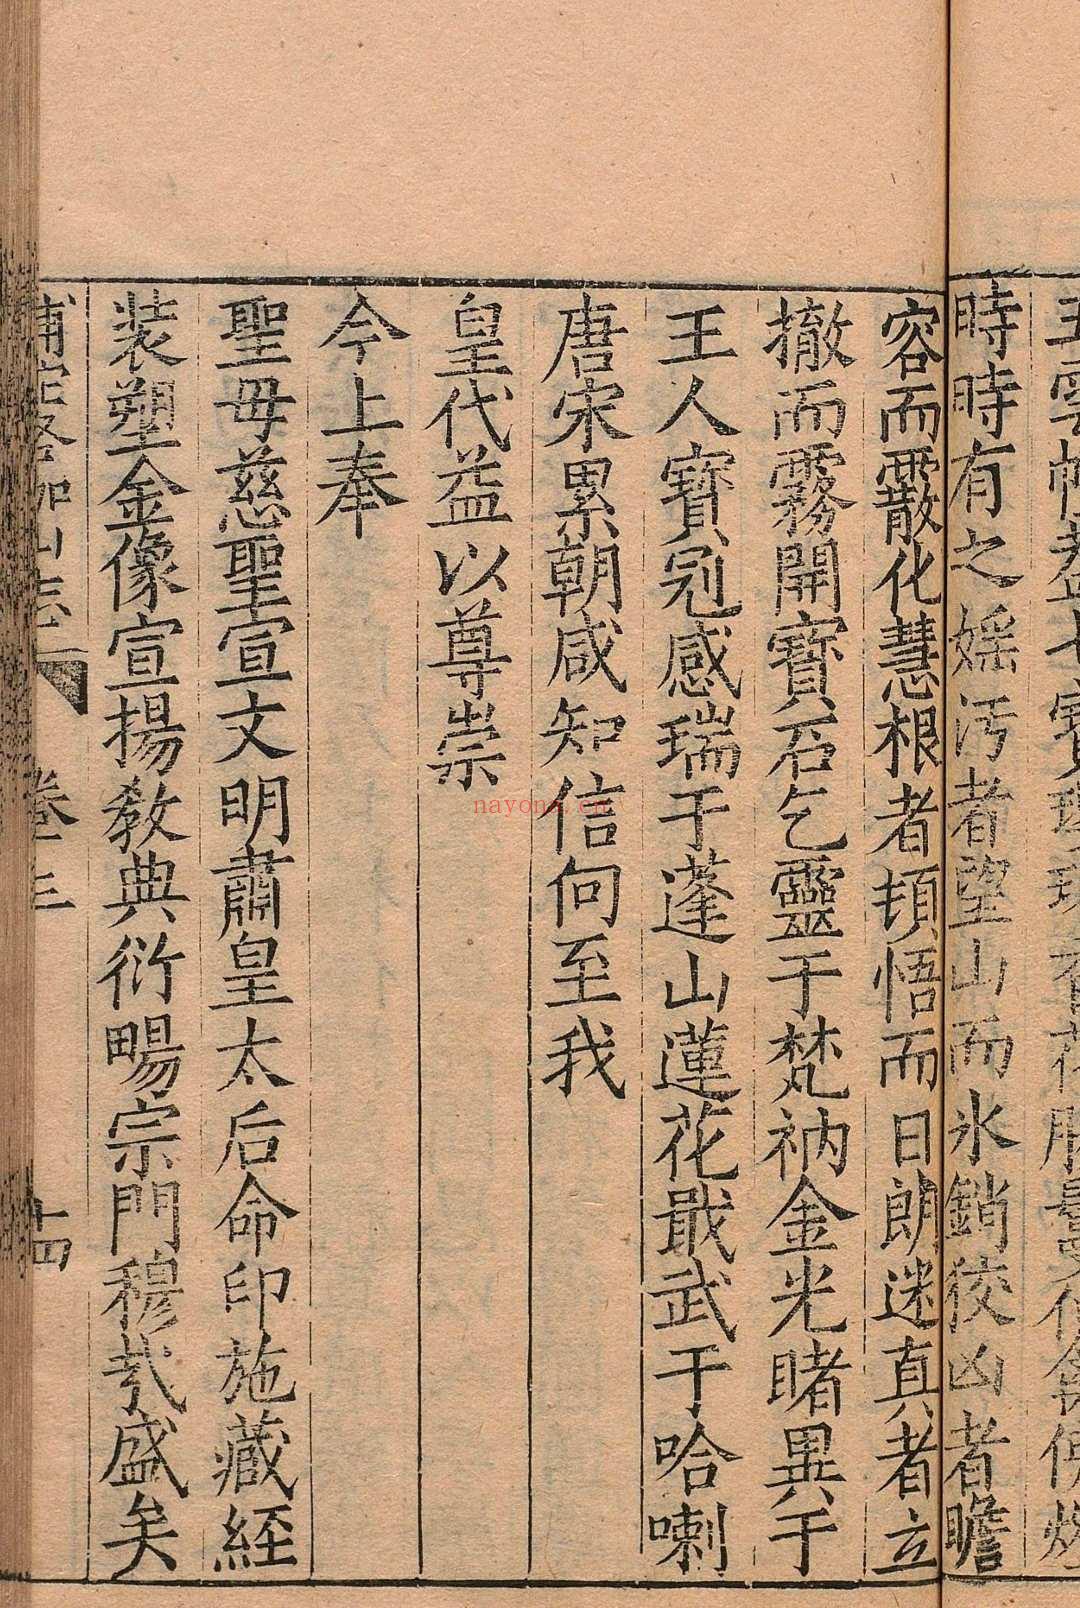 五雲幢蓋七寶瓔珞香花勝曼
時時有之婬汚者望山而氷銷狡凶者瞻
容而霰化慧根者頓悟而日朗迷真者立
撤而霧開寳石乞靈于梵衲金光睹異于
王人寳冠感瑞于蓬山蓮花戢武于哈喇
唐宋累朝咸知信向至我
皇代益以尊崇
今上奉
聖母慈聖宣文明肅皇太后命印施藏經
装塑金像宣揚教典衍暢宗門穆哉盛矣
補陀洛伽山志 卷三 十四
nayona.cn